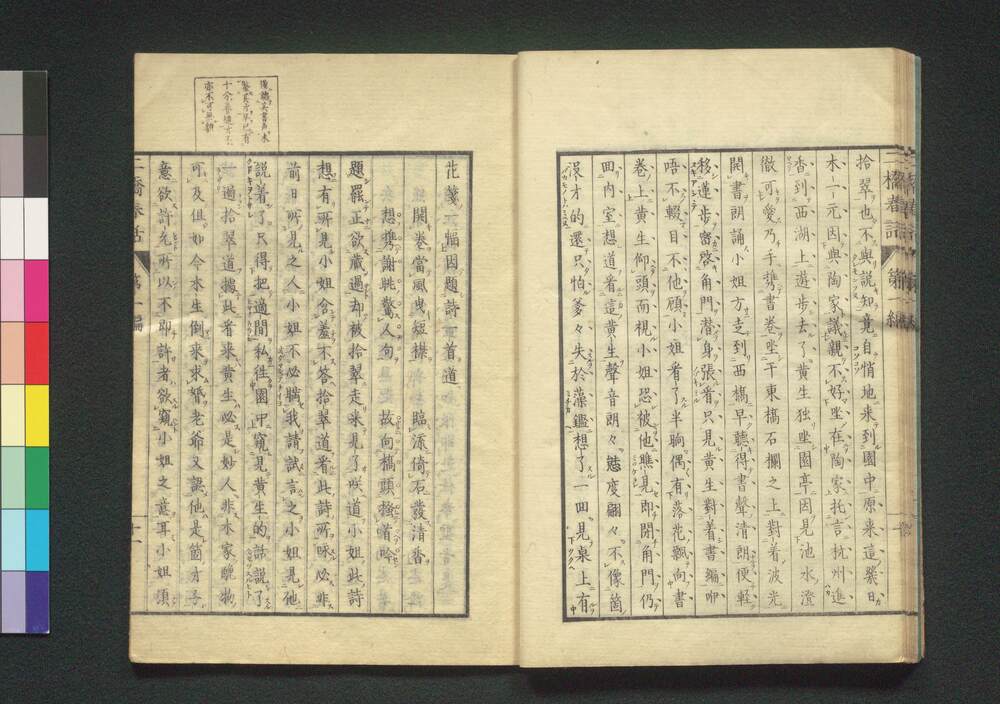 拾翠也不與說知竟自悄地来到園中原来這幾日
木一元因與陶家議親不好坐在陶家托言杭州進
香到西湖上遊步去了黄生独坐園亭因見池水澄
徹可愛乃手携書卷坐于東橋石欄之上對着波光
開書朗誦小姐方走到西橋早聽得書聲清朗便輕
移蓮步密啓角門潜身張看只見黄生對着書編咿
唔不輟目不他顧小姐看了半晌偶有落花飄向書
卷上黄生仰頭而視小姐恐被他瞧見即閉角門仍
回内室想道看這黄生聲音朗々態度翩々不像箇
没才的還只怕爹々失於藻鑑想了一回見桌上有
二橋春話
第一編
花箋一幅因題詩一首道
閑卷當風曳短襟 臨流倚石發清香
想携謝眺驚人句 故向橋頭搔首吟
題罷正欲藏過却被拾翠走来見了咲道小姐此詩
想有所見小姐含羞不答拾翠道看此詩所咏必非
前日所見之人小姐不必瞞我請試言之小姐見他
說着了只得把適間私往園中窺見黄生的話說了
一遍拾翠道據此看来黄生必是妙人非木家醜物
可及但如今木生倒来求婚老爺又認他是箇才子
意欲許允所以不即許者欲窺小姐之意耳小姐須
二橋春話
第一編
十一
十分
亦不可無